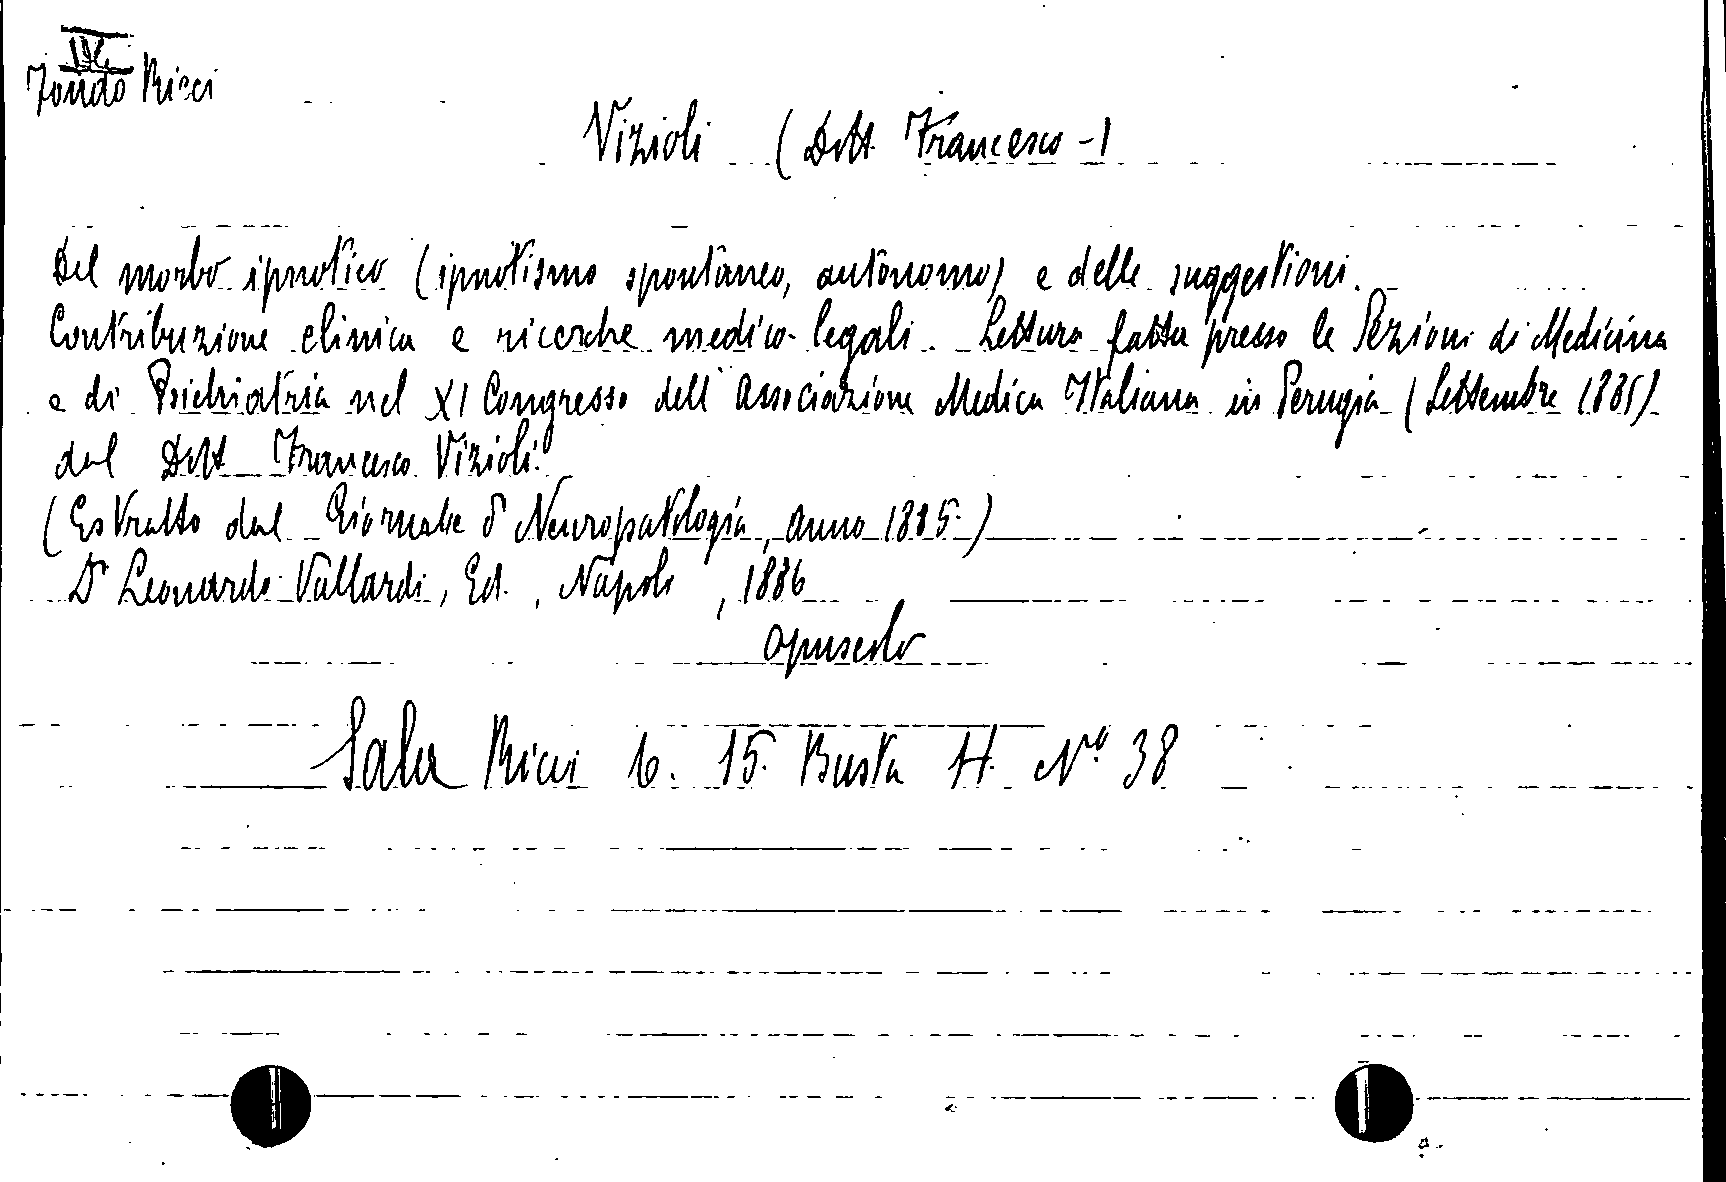 IX
Fondo Ricci
Vizioli (Dott. Francesco -)
Del morbo ipnotico (ipnotismo spontaneo, autonomo) e delle suggestioni.
Contribuzione clinica e ricerche medico-legali. Lettura fatta presso le Sezioni di Medicina
e di Psichiatria nel XI Congresso dell'Associazione Medica Italiana in Perugia (Settembre 1885)
dal Dott Francesco Vizioli.
(Estratto dal Giornale di Neuropatologia, anno 1885.)
Dr Leonardo Vallardi, Ed., Napoli, 1886
opuscolo
Sala Ricci 6. 15. Busta H. No. 38